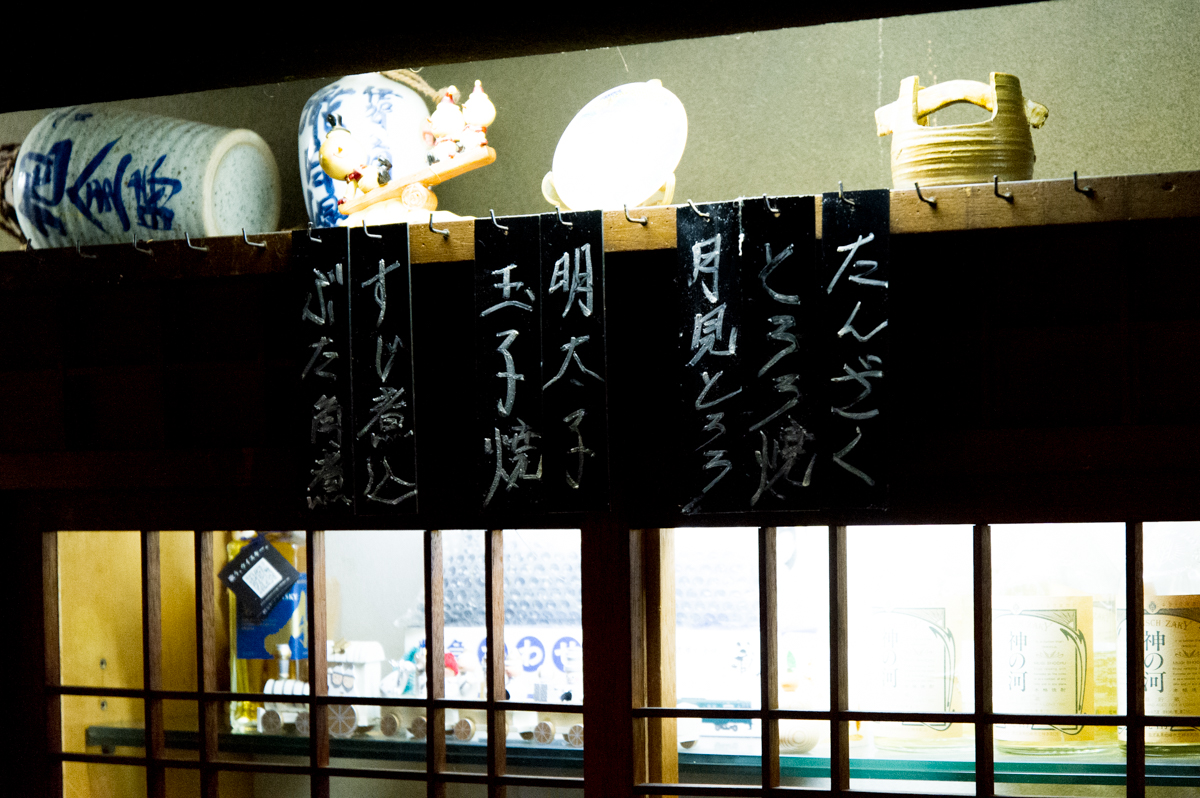 たんざく
とろろ焼
月見とろろ
明太子
玉子焼
すじ煮込
ぶた角煮
神の河
神の河
神の河
わせ